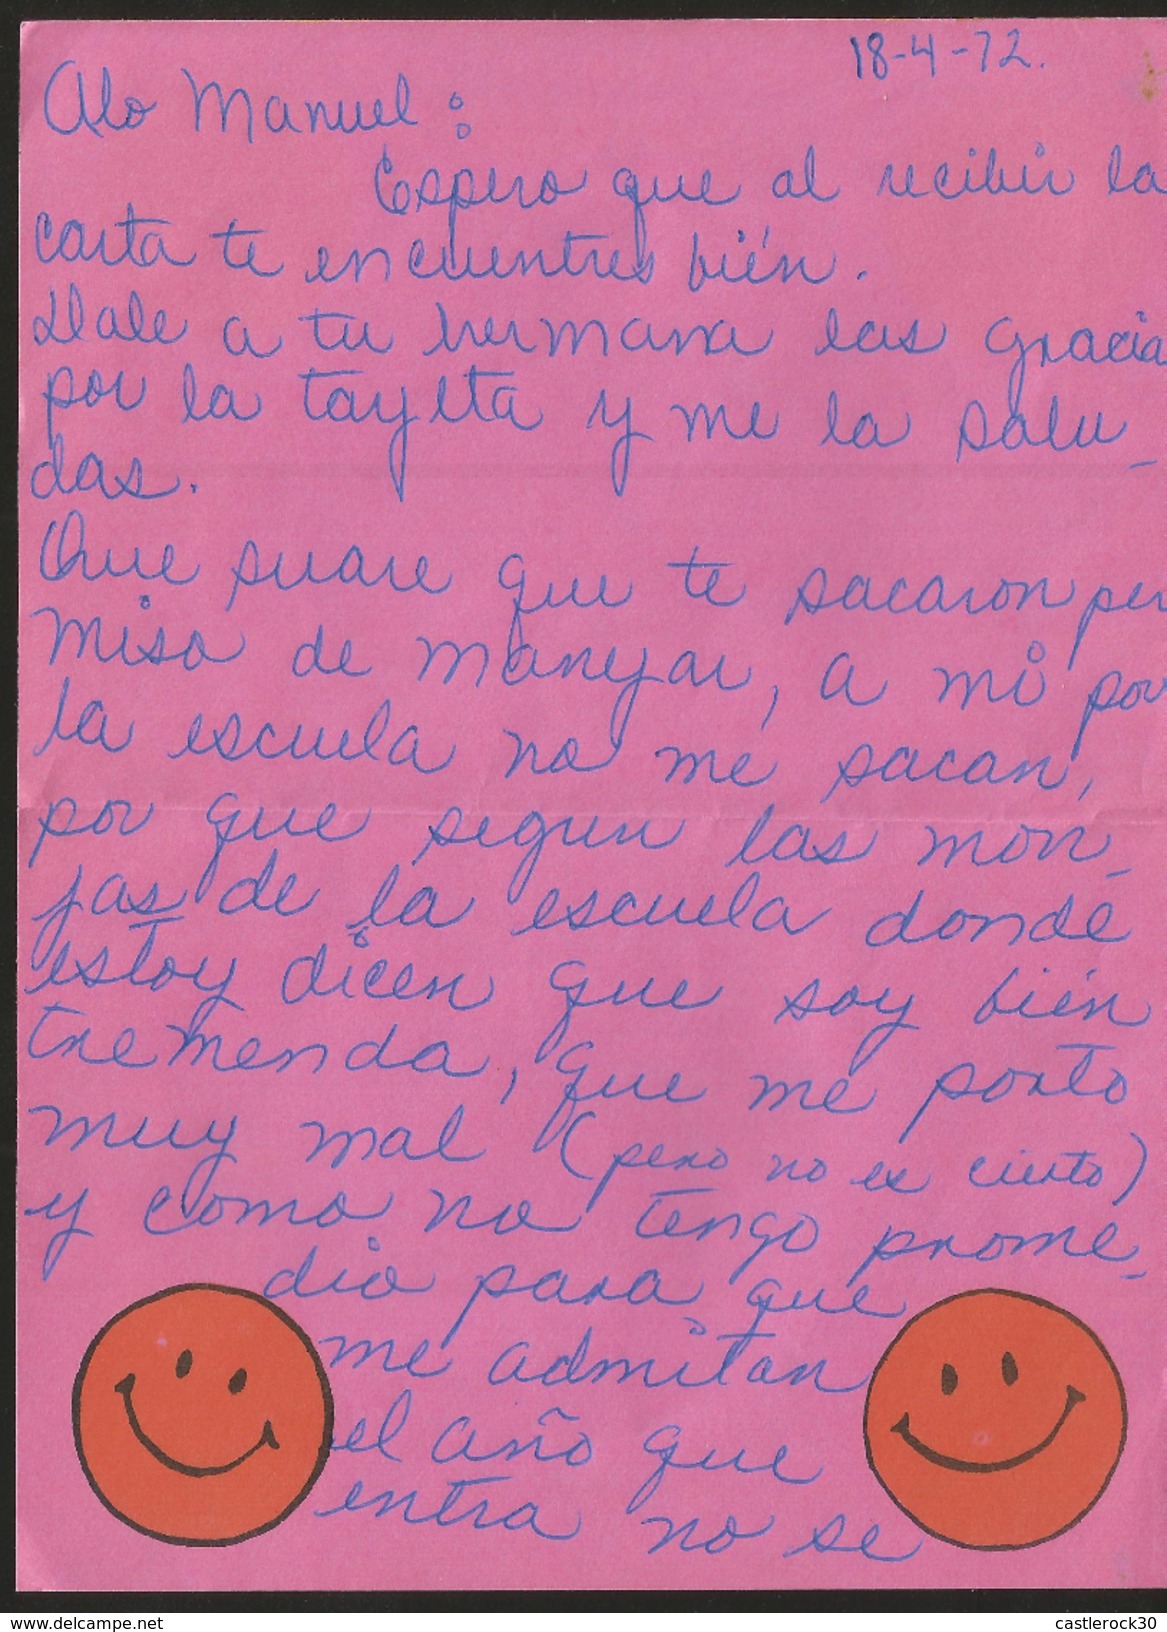 18-4-72.
Alo Manuel:
Espero que al recibir la
carta te encuentres bién.
Dale a tu hermana las gracia
por la tayeta y me la salu-
das.
Que suave que te sacaron per
miso de manejar, a mi por
la escuela no me sacan,
por que segun las mon-
jas de la escuela donde
estoy dicen que soy bién
tremenda, que me porto
muy mal (pero no es cierto)
y como no tengo prome-
dio para que
me admitan
el año que
entra no se
www.delcampe.net
castlerock30